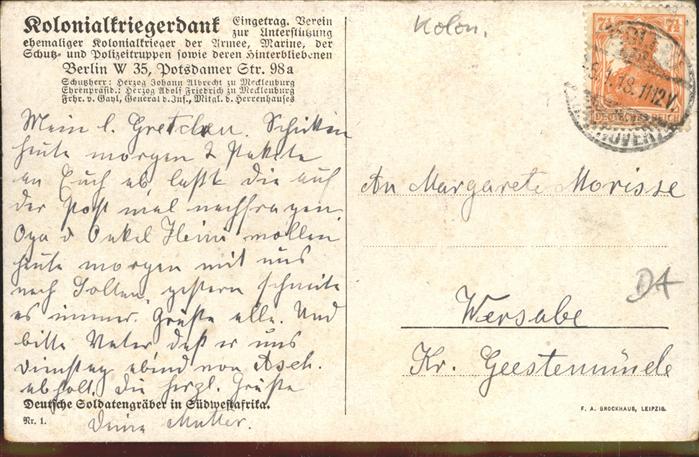 Kolonialkriegerdank Eingetrag. Verein
zur Unterstützung
ehemaliger Kolonialkrieger der Armee, Marine, der
Schutz- und Polizeitruppen sowie deren Hinterbliebenen
Berlin W 35, Potsdamer Str. 98a
Schutzherr: Herzog Johann Albrecht zu Mecklenburg
Ehrenpräsid.: Herzog Adolf Friedrich zu Mecklenburg
Frhr. v. Gayl, General d. Inf., Mitgl. d. Herrenhauses
Kolon.
7½ 7½
DEUTSCHES REICH
Mein l. Gretchen. Schickten
heute morgen 2 Pakete
an Euch ab, laßt die auf
der Post mal nachfragen.
Opa & Onkel Heini wollen
heute morgen mit uns
nach, gestern schneite
es immer. Grüße alle. Und
bitte Vater daß er uns
Dienstag abend von
abholt. Die herzl. Grüße
Deine Mutter.
An Margarete Morisse
Wersabe
Kr. Geestemünde
D4
Deutsche Soldatengräber in Südwestafrika.
Nr. 1.
F. A. BROCKHAUS, LEIPZIG.